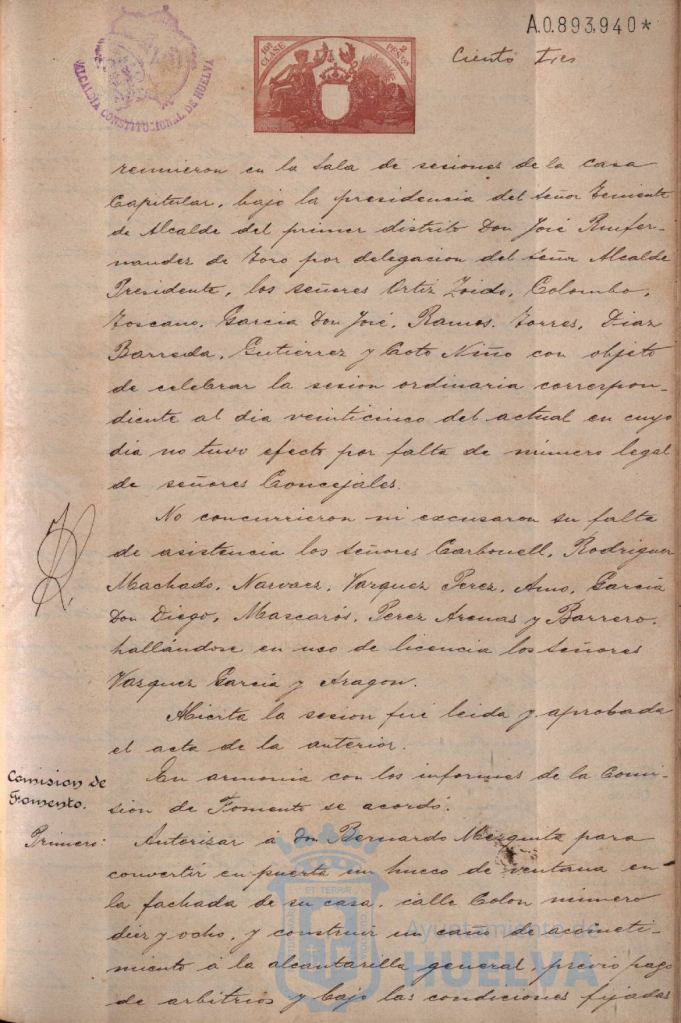 A.0.893.940*
10ª CLASE
2 PESETAS
Ciento tres
ALCALDIA CONSTITUCIONAL DE HUELVA
reunieron en la Sala de sesiones de la casa
Capitular, bajo la presidencia del Señor Teniente
de Alcalde del primer distrito Don José
nandez de Toro por delegacion del Señor Alcalde
Presidente, los señores Ortiz Zoido, Colombo,
Toscano, Garcia Don José, Ramos, Torres, Diaz
Barreda, Gutierrez y Coto Niño con objeto
de celebrar la sesion ordinaria correspon-
diente al dia veinticinco del actual en cuyo
dia no tuvo efecto por falta de número legal
de señores Concejales.
No concurrieron ni excusaron su falta
de asistencia los señores Carbonell, Rodriguez
Machado, Narvaez, Vazquez Perez, Amo, García
Don Diego, Mascarós, Perez Arenas y Barrero,
hallándose en uso de licencia los señores
Vazquez Garcia y Aragon.
Abierta la sesion fué leida y aprobada
el acta de la anterior.
Comision de
Fomento.
En armonia con los informes de la Comi-
sion de Fomento se acordó:
Primero:
Autorizar á Don Bernardo Mezquita para
convertir en puerta un hueco de ventana en
la fachada de su casa, calle Colon número
diez y ocho, y construir un caño de acometi-
miento á la alcantarilla general, previo pago
de arbitrios y bajo las condiciones fijadas
Ayuntamiento de
HUELVA